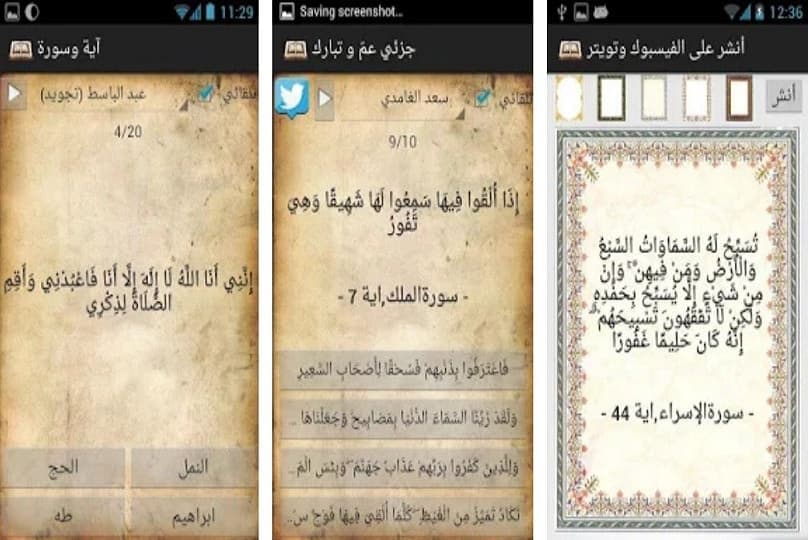 11:29
آية وسورة
تلقائي
عبد الباسط (تجويد)
4/20
إِنَّنِي أَنَا اللَّهُ لَا إِلَهَ إِلَّا أَنَا فَاعْبُدْنِي وَأَقِمِ
الصَّلَاةَ لِذِكْرِي
النمل
الحج
ابراهيم
طه
Saving screenshot...
جزئي عمّ و تبارك
تلقائي
سعد الغامدي
9/10
إِذَا أُلْقُوا فِيهَا سَمِعُوا لَهَا شَهِيقًا وَهِيَ
تَفُورُ
- سورةالملك,اية 7 -
فَاعْتَرَفُوا بِذَنْبِهِمْ فَسُحْقًا لِأَصْحَابِ السَّعِيرِ
وَلَقَدْ زَيَّنَّا السَّمَاءَ الدُّنْيَا بِمَصَابِيحَ وَجَعَلْنَاهَا ...
وَلِلَّذِينَ كَفَرُوا بِرَبِّهِمْ عَذَابُ جَهَنَّمَ ۖ وَبِئْسَ الْمَ...
تَكَادُ تَمَيَّزُ مِنَ الْغَيْظِ ۖ كُلَّمَا أُلْقِيَ فِيهَا فَوْجٌ سَ...
12:36
أنشر على الفيسبوك وتويتر
أنش
تُسَبِّحُ لَهُ السَّمَاوَاتُ السَّبْعُ
وَالْأَرْضُ وَمَنْ فِيهِنَّ ۚ وَإِنْ
مِنْ شَيْءٍ إِلَّا يُسَبِّحُ بِحَمْدِهِ
وَلَكِنْ لَا تَفْقَهُونَ تَسْبِيحَهُمْ ۗ
إِنَّهُ كَانَ حَلِيمًا غَفُورًا
- سورةالإسراء,اية 44 -